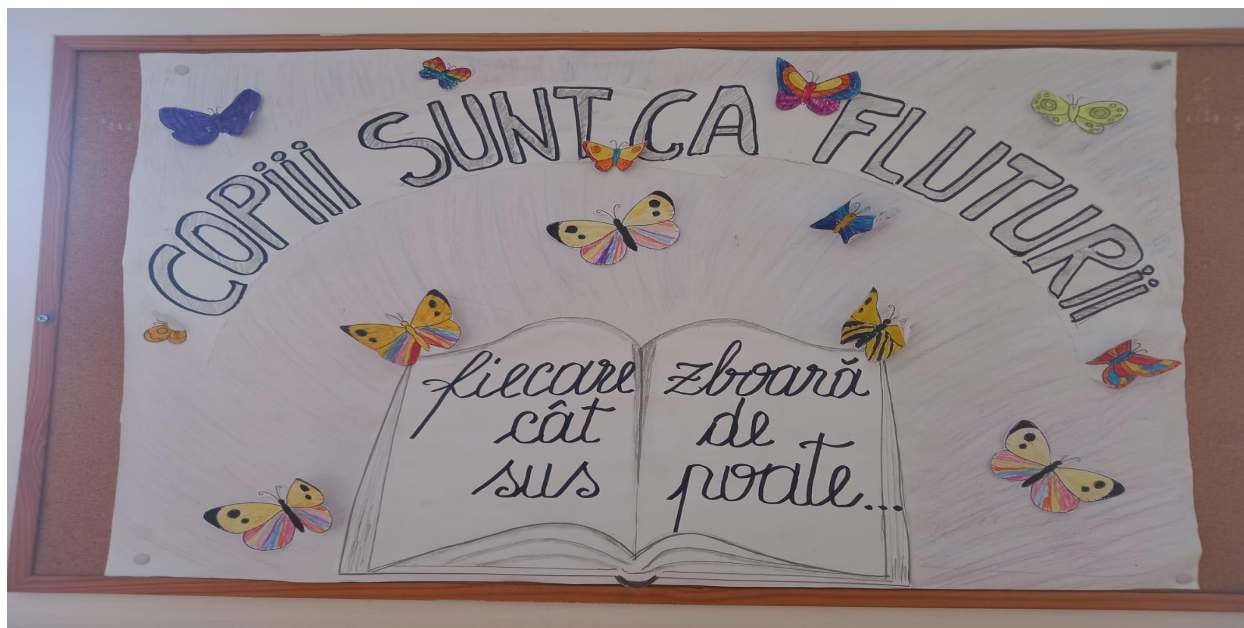 COPiii SUNT CA FLUTURii
fiecare zboară
cât de
sus poate...